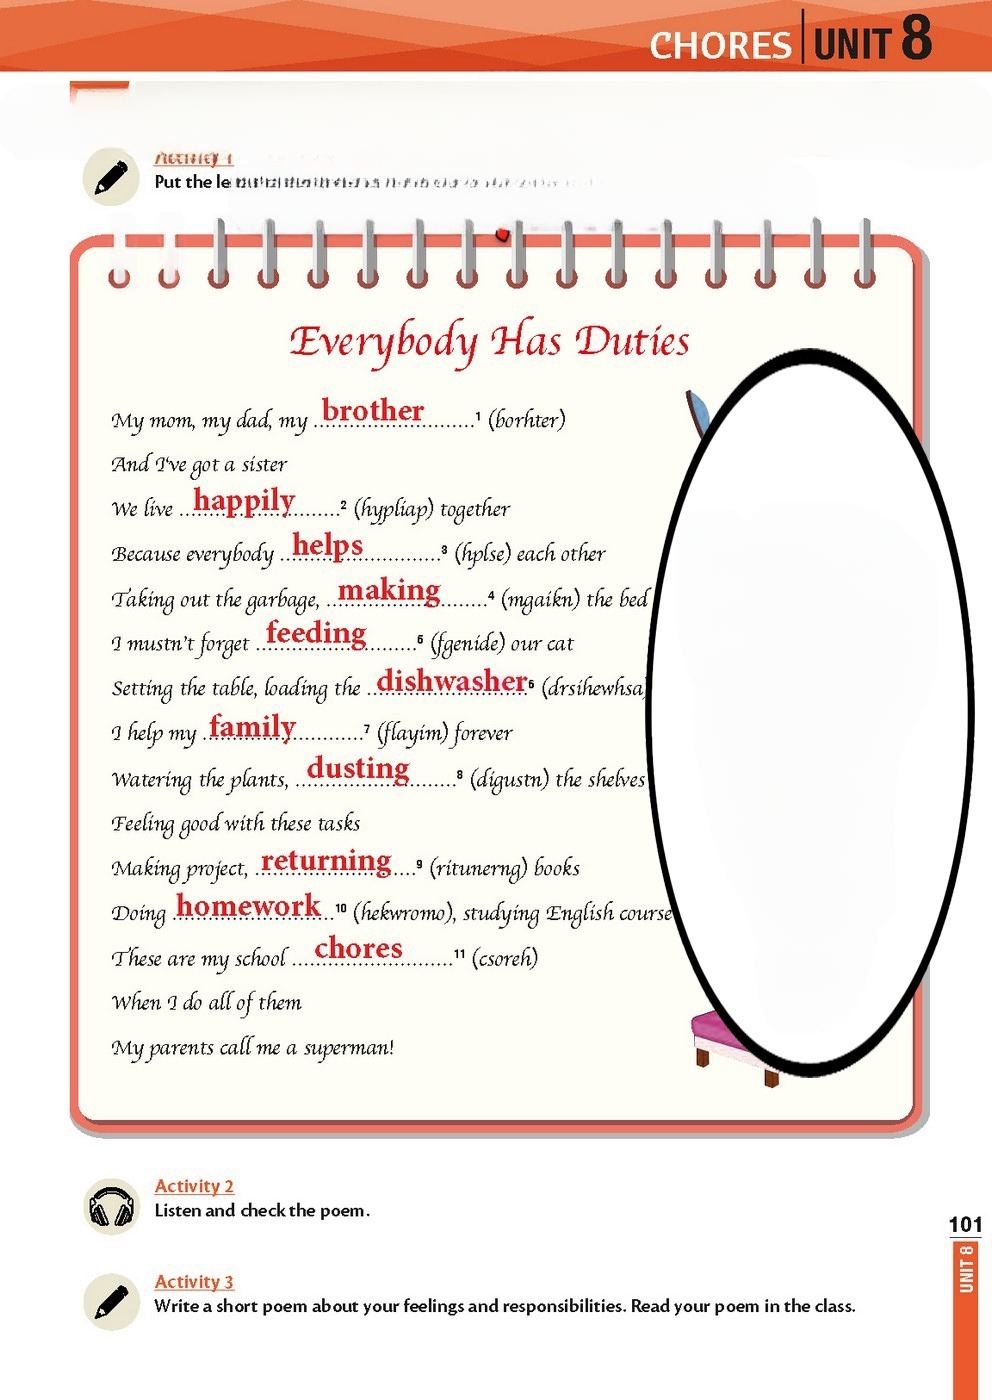 CHORES UNIT 8
Put the
Everybody Has Duties
My mom, my dad, my brother ¹ (borhter)
And I've got a sister
We live happily ² (hypliap) together
Because everybody helps ³ (hplse) each other
Taking out the garbage, making ⁴ (mgaikn) the bed
I mustn't forget feeding ⁵ (fgenide) our cat
Setting the table, loading the dishwasher ⁶ (drsihewhsa)
I help my family ⁷ (flayim) forever
Watering the plants, dusting ⁸ (digustn) the shelves
Feeling good with these tasks
Making project, returning ⁹ (ritunerng) books
Doing homework ¹⁰ (hekwromo), studying English course
These are my school chores ¹¹ (csoreh)
When I do all of them
My parents call me a superman!
Activity 2
Listen and check the poem.
101
UNIT 8
Activity 3
Write a short poem about your feelings and responsibilities. Read your poem in the class.